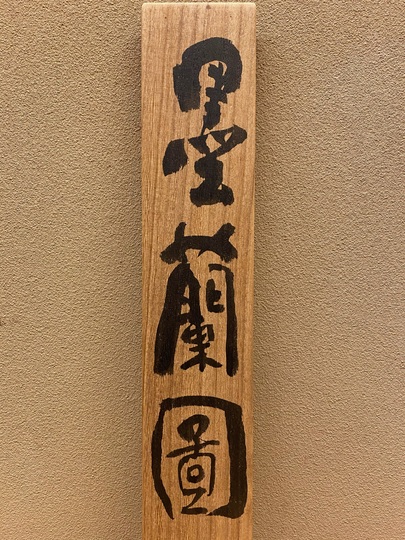 墨蘭圖